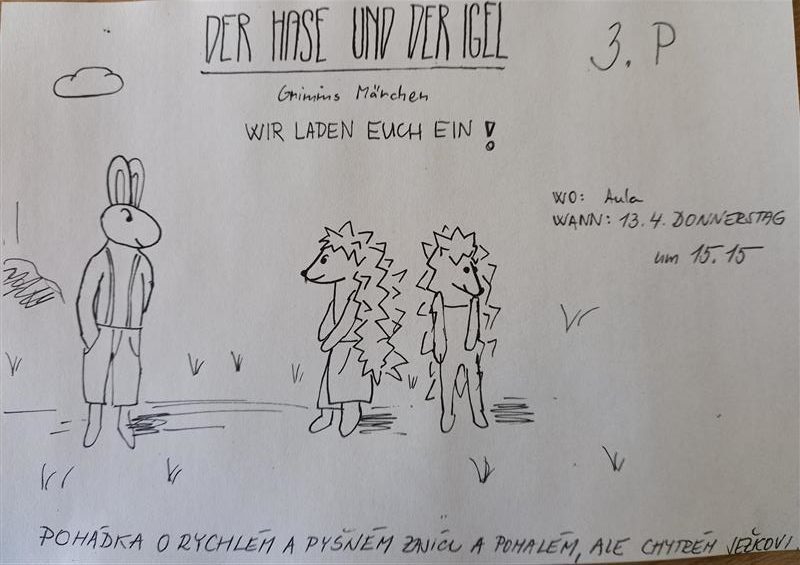 DER HASE UND DER IGEL
3. P
Grimms Märchen
WIR LADEN EUCH EIN!
WO: Aula
WANN: 13.4. DONNERSTAG
um 15.15
POHÁDKA O RYCHLÉM A PYŠNÉM ZAJÍCU A POMALÉM, ALE CHYTRÉM JEŽKOVI.